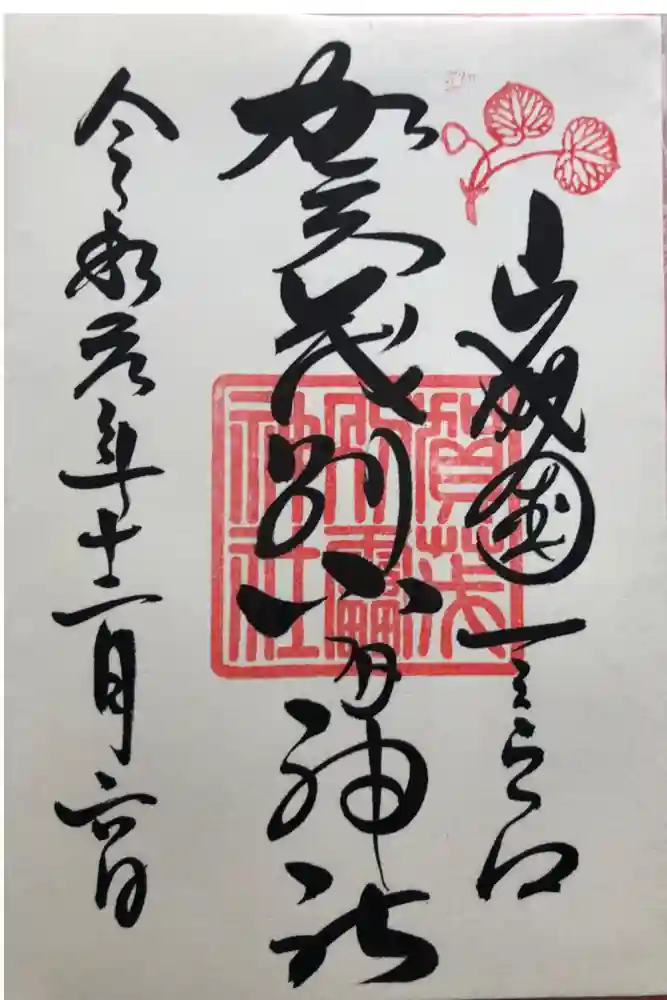 山城國一之宮
賀茂別雷神社
令和元年十二月六日
賀茂
別雷
神社